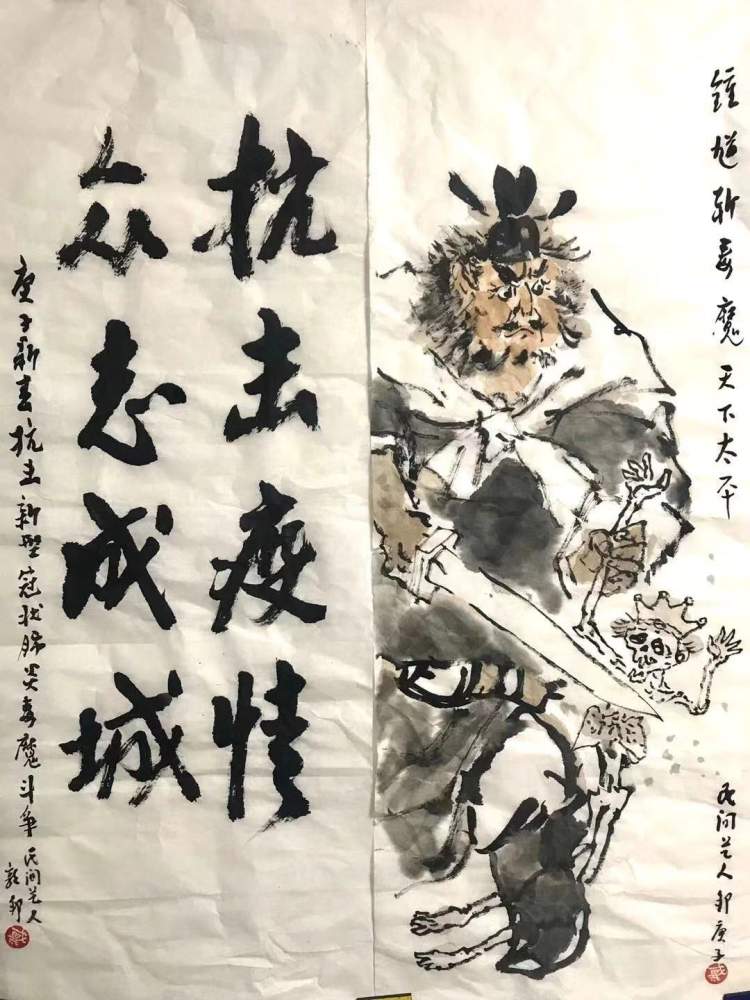 鍾馗斩毒魔天下太平
民间艺人邦庚子
抗击疫情
众志成城
庚子新春抗击新型冠状肺炎毒魔斗争
民间艺人
郭邦